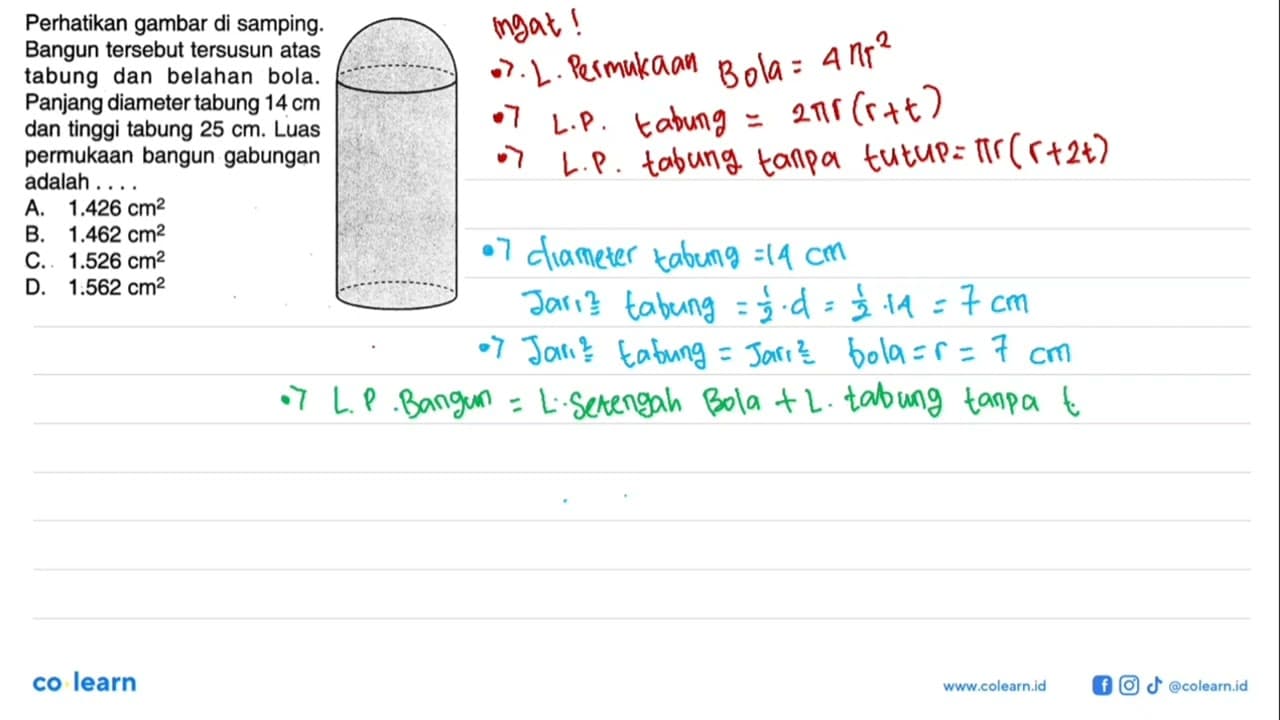 Perhatikan gambar di samping.
Bangun tersebut tersusun atas
tabung dan belahan bola.
Panjang diameter tabung 14 cm
dan tinggi tabung 25 cm. Luas
permukaan bangun gabungan
adalah . . . .
A. 1.426 cm²
B. 1.462 cm²
C. 1.526 cm²
D. 1.562 cm²
Ingat !
•→. L. Permukaan Bola = 4πr²
•→ L.P. tabung = 2πr(r+t)
•→ L.P. tabung tanpa tutup = πr(r+2t)
•→ diameter tabung = 14 cm
Jari² tabung = 1/2 · d = 1/2 · 14 = 7 cm
•→ Jari² tabung = Jari² bola = r = 7 cm
•→ L.P. Bangun = L. Setengah Bola + L. tabung tanpa t
co learn
www.colearn.id
@colearn.id